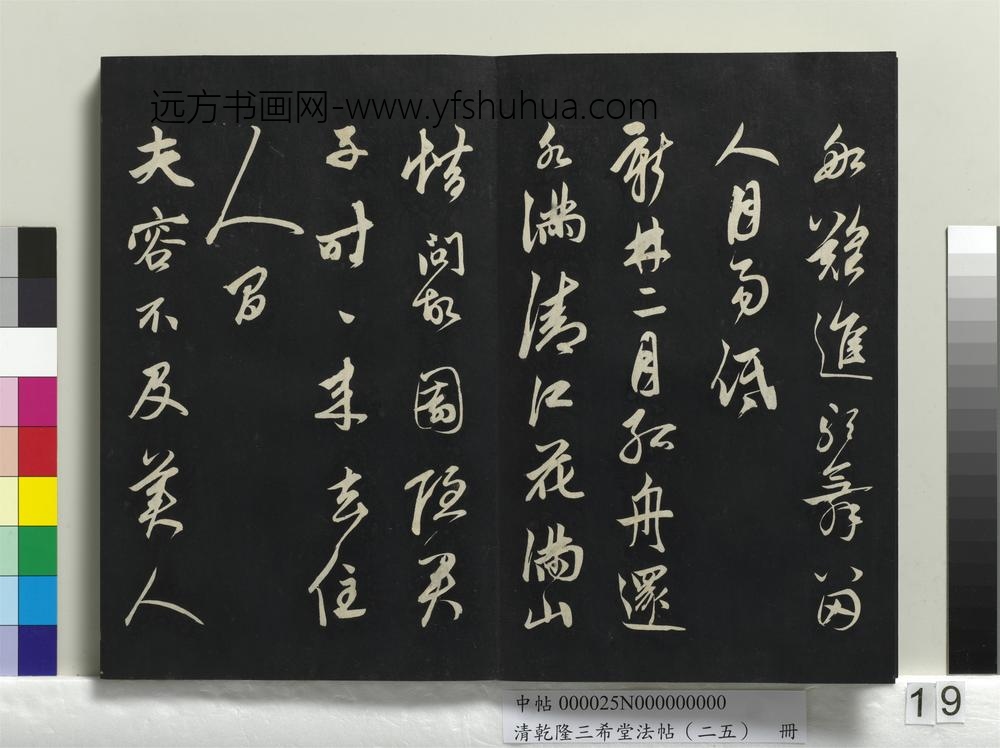 远方书画网-www.yfshuhua.com
船難進歌舞留
人月易低
新林二月孤舟還
水滿清江花滿山
借問故園隱君
子時、來去住
人間
夫容不及美人
中帖 000025N000000000
清乾隆三希堂法帖（二五） 冊
19